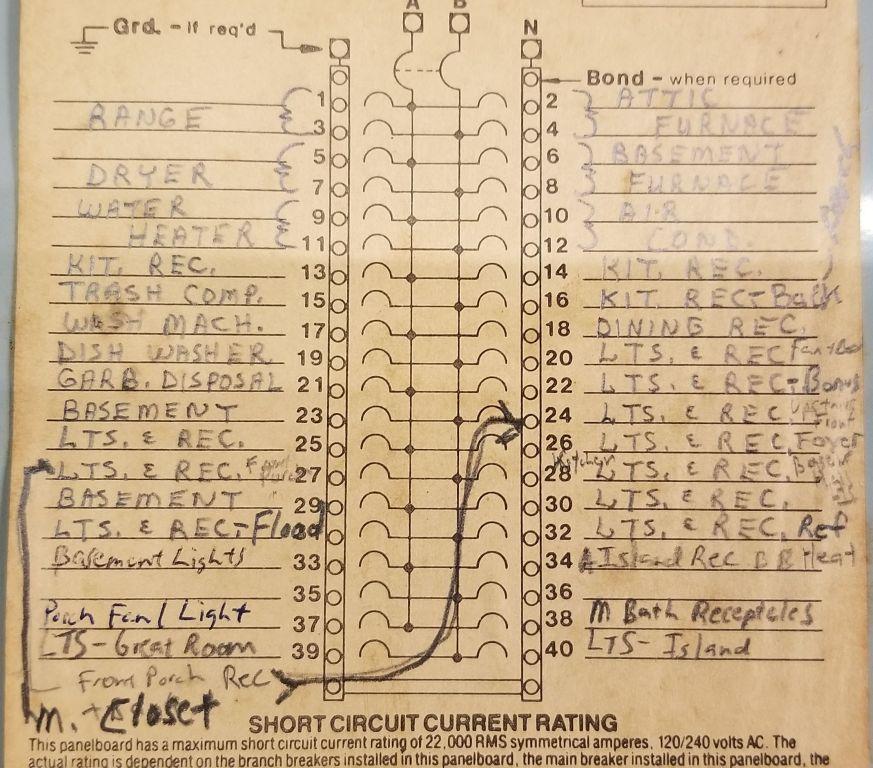 A B
Grd. - if req'd N
Bond - when required
1 2 ATTIC
RANGE 3 4 FURNACE
5 6 BASEMENT
DRYER 7 8 FURNACE
WATER 9 10 AIR
HEATER 11 12 COND.
KIT. REC. 13 14 KIT. REC.
TRASH COMP. 15 16 KIT. REC - Bath
WASH MACH. 17 18 DINING REC.
DISH WASHER 19 20 LTS. & REC
GARB. DISPOSAL 21 22 LTS. & REC - Bonus
BASEMENT 23 24 LTS. & REC. Front
LTS. & REC. 25 26 LTS. & REC. Foyer
LTS. & REC. 27 Kitchen 28 LTS. & REC.
BASEMENT 29 30 LTS. & REC.
LTS. & REC - Flood 32 LTS. & REC. Ref
Basement Lights 33 34 Island Rec Heat
35 36
Porch Fan / Light 37 38 M Bath Receptcles
LTS - Great Room 39 40 LTS - Island
Front Porch Rec
M. Closet
SHORT CIRCUIT CURRENT RATING
This panelboard has a maximum short circuit current rating of 22,000 RMS symmetrical amperes, 120/240 volts AC. The
actual rating is dependent on the branch breakers installed in this panelboard, the main breaker installed in this panelboard, the